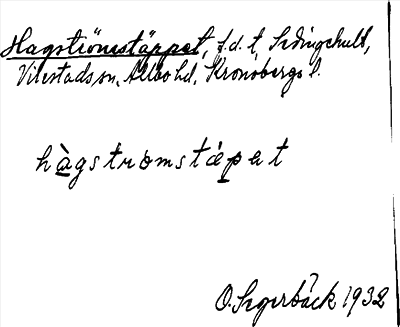 Hagströmstäppet, f.d. t, Sedingehult,
Virestads sn, Allbo hd, Kronobergs l.
hàgstrømstǽpet
O. Segerbäck 1932